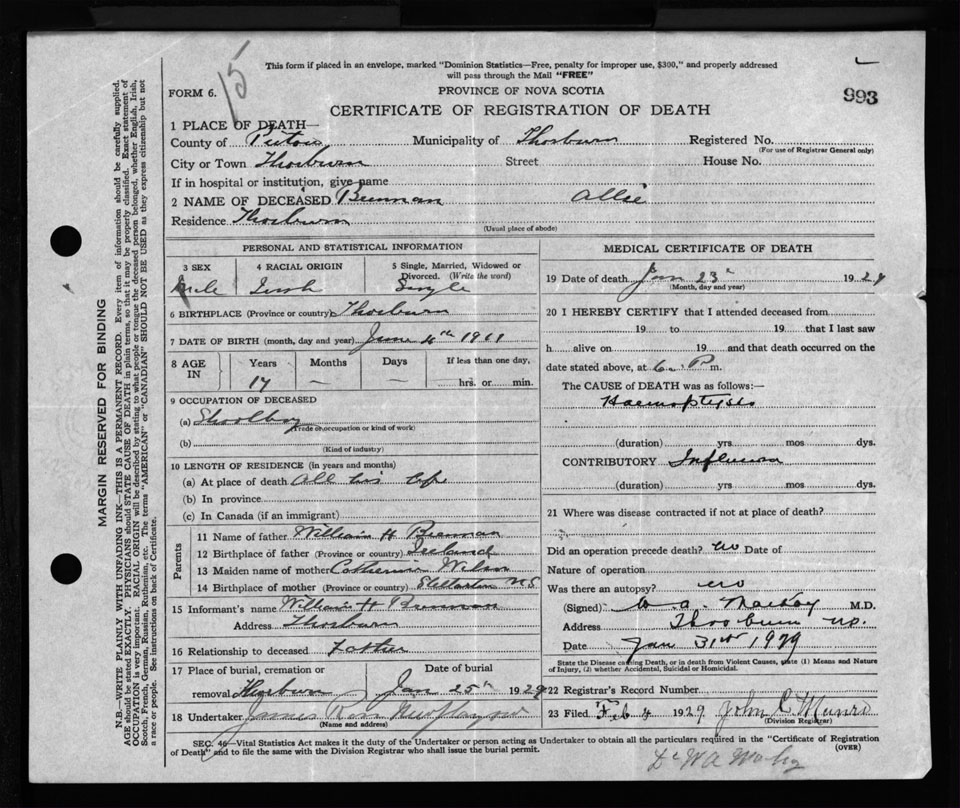 15
This form if placed in an envelope, marked "Dominion Statistics—Free, penalty for improper use, $300," and properly addressed
will pass through the Mail "FREE"
FORM 6. PROVINCE OF NOVA SCOTIA 993
CERTIFICATE OF REGISTRATION OF DEATH
1 PLACE OF DEATH—
County of Pictou Municipality of Thorburn Registered No.
(For use of Registrar General only)
City or Town Thorburn Street House No.
If in hospital or institution, give name
2 NAME OF DECEASED Brennan Allie
Residence Thorburn
(Usual place of abode)
PERSONAL AND STATISTICAL INFORMATION
3 SEX 4 RACIAL ORIGIN 5 Single, Married, Widowed or
Divorced. (Write the word)
Male Irish Single
6 BIRTHPLACE (Province or country) Thorburn
7 DATE OF BIRTH (month, day and year) June 4th 1911
8 AGE IN Years Months Days If less than one day,
17 — — hrs. or min.
9 OCCUPATION OF DECEASED
(a) Shoolboy
(Trade or occupation or kind of work)
(b)
(Kind of industry)
10 LENGTH OF RESIDENCE (in years and months)
(a) At place of death All his life
(b) In province
(c) In Canada (if an immigrant)
Parents
11 Name of father William H Brennan
12 Birthplace of father (Province or country) Ireland
13 Maiden name of mother Catherine Wilson
14 Birthplace of mother (Province or country) Stellarton N S
15 Informant's name William H Brennan
Address Thorburn
16 Relationship to deceased Father
17 Place of burial, cremation or Date of burial
removal Thorburn Jan 25th 1929
18 Undertaker James Ross New Glasgow
(Name and address)
MEDICAL CERTIFICATE OF DEATH
19 Date of death Jan 23rd 1929
(Month, day and year)
20 I HEREBY CERTIFY that I attended deceased from
19 to 19 that I last saw
h alive on 19 and that death occurred on the
date stated above, at 6 P m.
The CAUSE of DEATH was as follows:—
Haemoptysis
(duration) yrs mos dys.
CONTRIBUTORY Influenza
(duration) yrs. mos. dys.
21 Where was disease contracted if not at place of death?
Did an operation precede death? no Date of
Nature of operation
Was there an autopsy? no
(Signed) W. A. MacKay M.D.
Address Thorburn N.S.
Date Jan 31st 1929
State the Disease causing Death, or in death from Violent Causes, state (1) Means and Nature
of Injury, (2) whether Accidental, Suicidal or Homicidal.
22 Registrar's Record Number
23 Filed Feb 4 1929 John C Munro
(Division Registrar)
SEC. 46—Vital Statistics Act makes it the duty of the Undertaker or person acting as Undertaker to obtain all the particulars required in the "Certificate of Registration
of Death" and to file the same with the Division Registrar who shall issue the burial permit. (OVER)
Dr W A
MARGIN RESERVED FOR BINDING
N.B.—WRITE PLAINLY WITH UNFADING INK—THIS IS A PERMANENT RECORD. Every item of information should be carefully supplied.
AGE should be stated EXACTLY. PHYSICIANS should STATE CAUSE OF DEATH in plain terms, so that it may be properly classified. Exact statement of
OCCUPATION is very important. RACIAL ORIGIN will be described by stating to what people or tongue the deceased person belonged, whether English, Irish,
Scotch, French, German, Russian, Ruthenian, etc. The terms "AMERICAN" or "CANADIAN" SHOULD NOT BE USED as they express citizenship but not
a race or people. See instructions on back of Certificate.